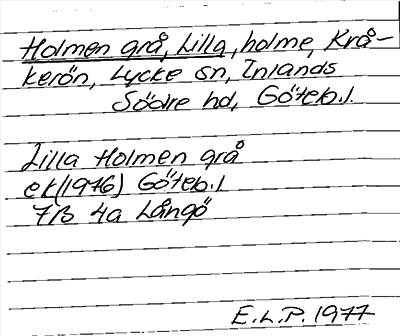 Holmen grå, Lilla, holme, Krå-
kerön, Lycke sn, Inlands
Södre hd, Göteb.l.
Lilla Holmen grå
ek(1976) Göteb.l
7B 4a Långö
E.L.P. 1977